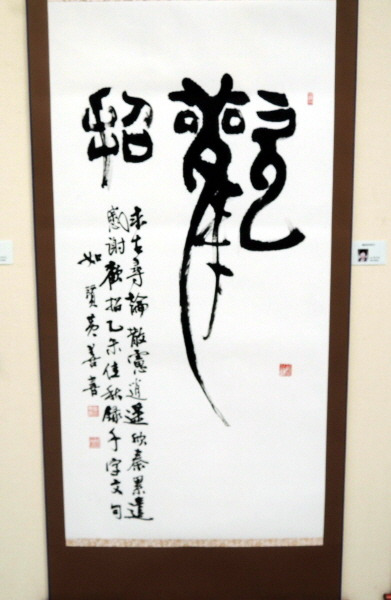 歡招
求古尋論散慮逍遙欣奏累遣
慼謝歡招乙未佳秋錄千字文句
如賢